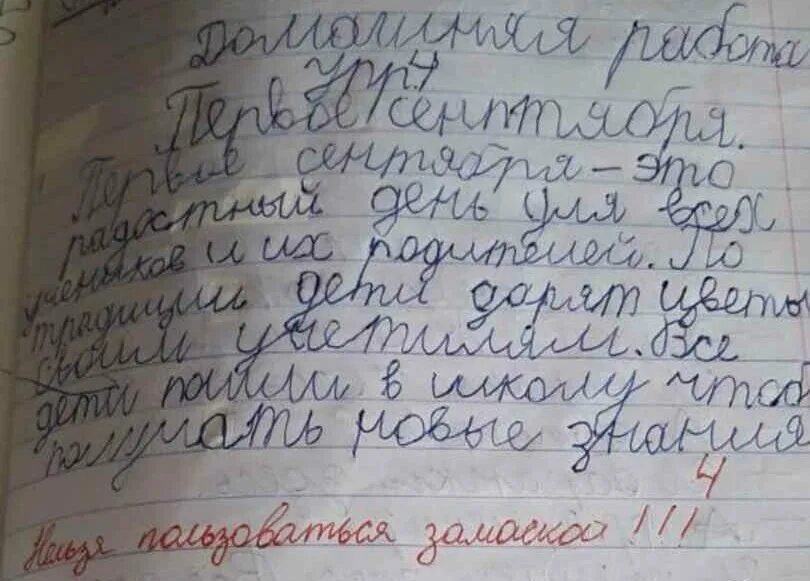 Домашняя работа
Упр.4
Первое сенптября.
Первое сентября – это
радостный день для всех
учеников и их родителей. По
традиции дети дарят цветы
своим учетилям. Все
дети пошли в школу чтоб
получать новые знания
4
Нельзя пользоваться замаской !!!